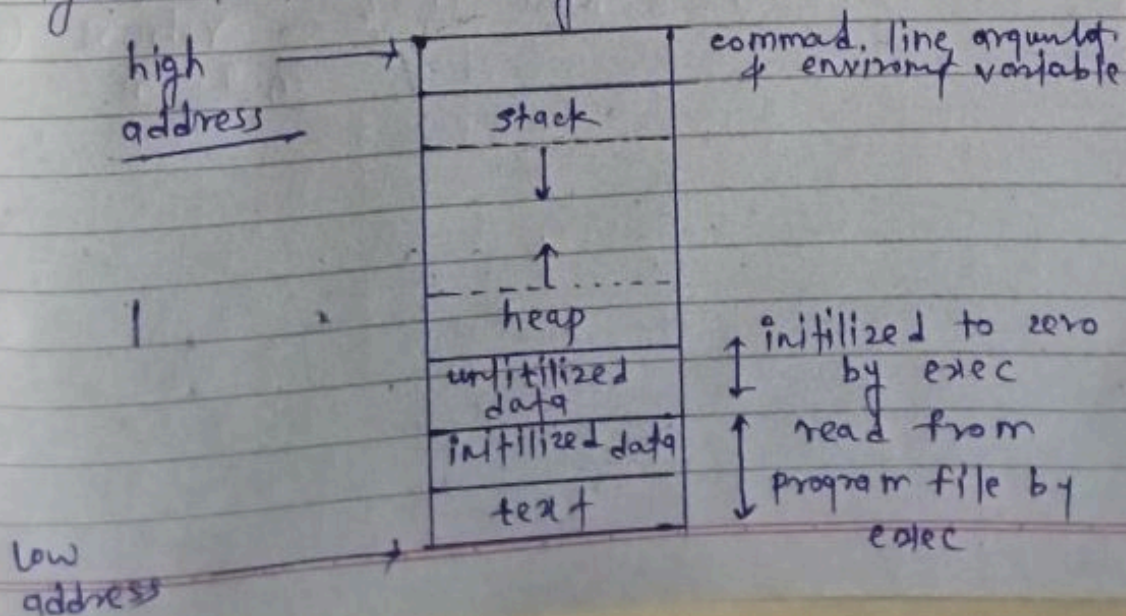 high
address
commad. line argumtot
& enviromt variable
stack
heap
uninitilized
data
initilized data
text
initilized to zero
by exec
read from
program file by
exec
low
address